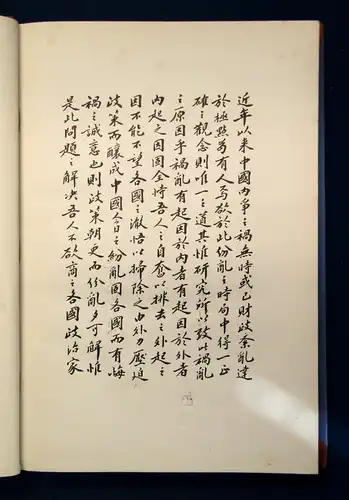 近年以來中國內爭之禍無時或已財政紊亂達
於極點苟有人焉欲於此紛亂之時局中得一正
確之觀念則唯一之道其惟研究所以致此禍亂
之原因乎禍亂有起因於內者有起因於外者
內起之因固全恃吾人之自奮以排去之外起之
因不能不望各國之澈悟以掃除之由外力壓迫
政策而釀成中國今日之紛亂固各國而有悔
禍之誠意也則政策朝更而紛亂夕可解惟
是此問題之解決吾人不欲商之各國政治家